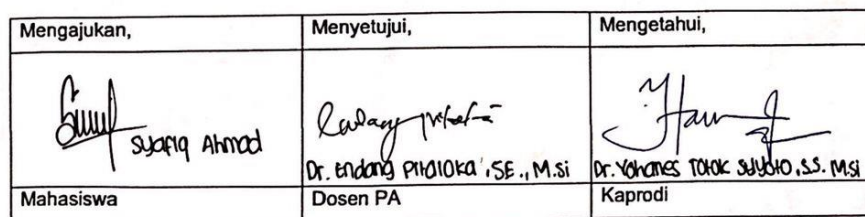 Mengajukan,
Menyetujui,
Mengetahui,
Syafiq Ahmad
Dr. Endang Pitaloka, SE., M.Si
Dr. Yohanes Totok Suyoto, S.S. M.Si
Mahasiswa
Dosen PA
Kaprodi